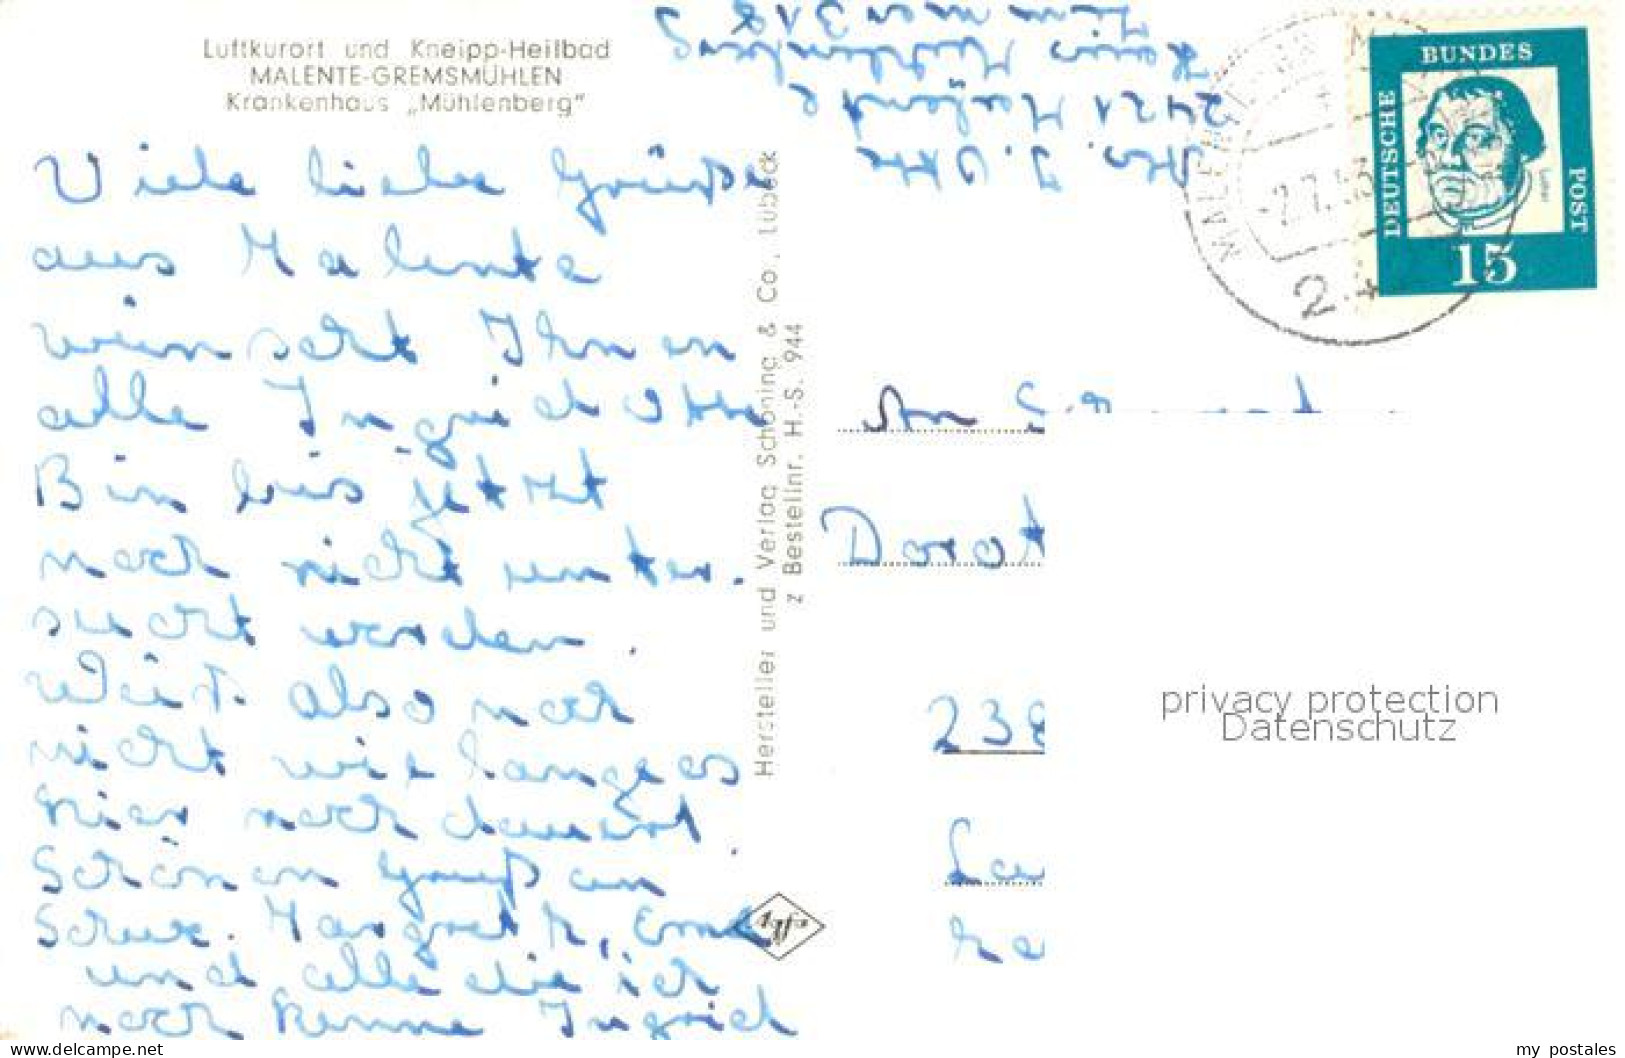 Luftkurort und Kneipp-Heilbad
MALENTE-GREMSMÜHLEN
Krankenhaus „Mühlenberg"
Viele liebe Grüße
aus Malente
wünscht Ihnen
alle Ingrid Otte
Bin bis jetzt
noch nicht unter-
sucht worden.
Weiß also noch
nicht wie lange es
hier noch dauert.
Schönen Gruß an
Schw. Margreth, Erna
und alle die ich
noch kenne Ingrid
Hersteller und Verlag Schöning & Co., Lübeck
z Bestellnr. H.-S. 944
Abs. I. Otte
2421 Malente
Haus Mühlenberg
Zimmer 318
DEUTSCHE
BUNDES
POST
Luther
15
An
Dorot
238
privacy protection
Datenschutz
www.delcampe.net
my_postales